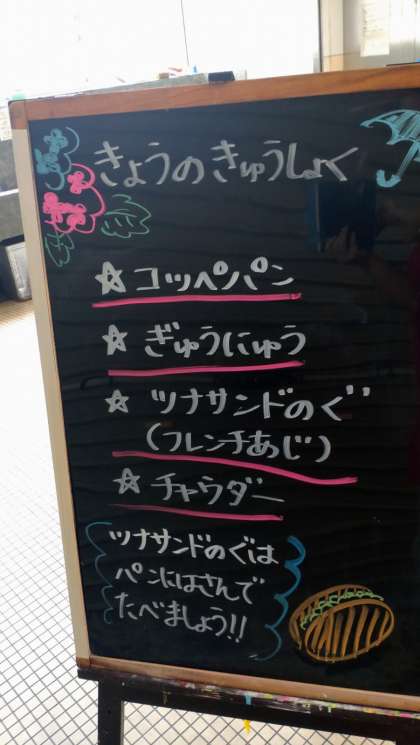 きょうのきゅうしょく
☆ コッペパン
☆ ぎゅうにゅう
☆ ツナサンドのぐ
(フレンチあじ)
☆ チャウダー
ツナサンドのぐは
パンにはさんで
たべましょう!!